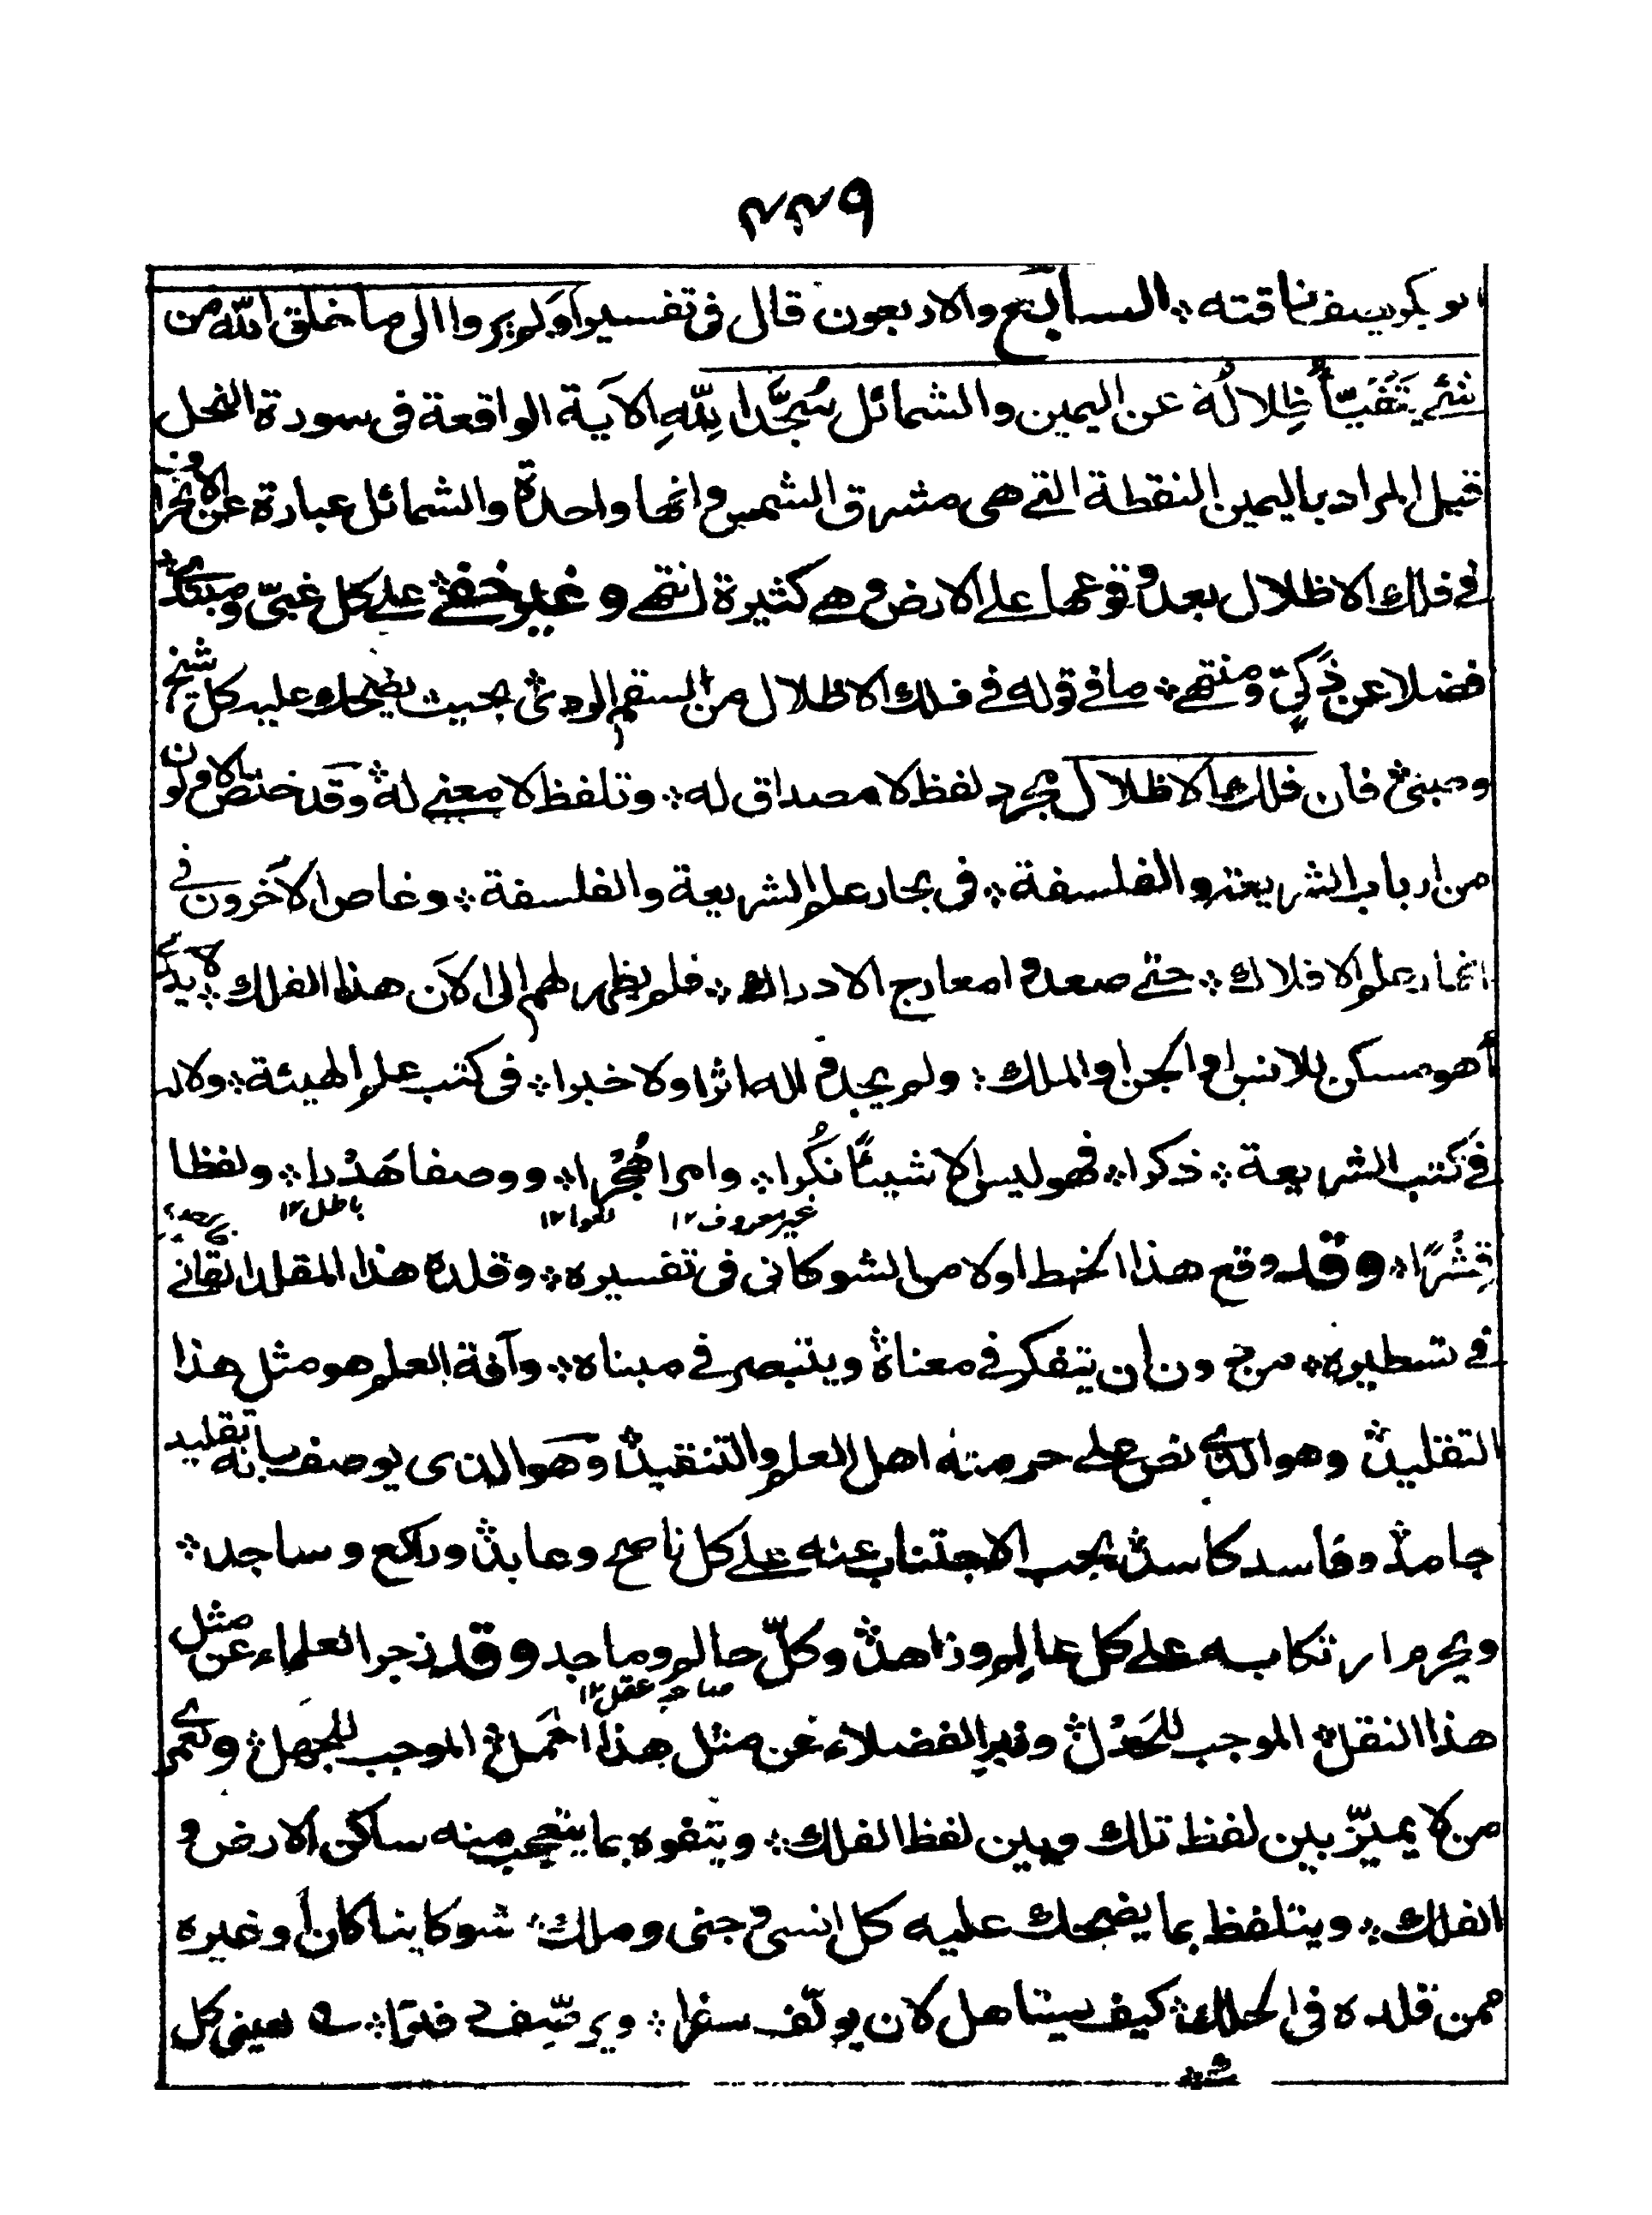 ٤٤٩
ناقته ؞ السابع والاربعون قال فى تفسير اَوَلم يروا الى ما خلق اللّٰه من
شئ يَتَفَيَّأُ ظِلالُهٗ عن اليمين والشمائل سُجَّدا لِلّٰهِ الآية الواقعة فى سورة النحل
قيل المراد باليمين النقطة التى هى مشرق الشمس وانها واحدة والشمائل عبارة عن الانحراف
فى فلك الاظلال بعد وقوعها على الارض وهى كثيرة انتهى وغير خفى ؞ على كل غبىّ ومبتدى ؞
فضلا عن ذكىّ ومنتهى ؞ ما فى قوله فى فلك الاظلال من السقم الردى ؞ بحيث يضحك عليه كل شيخ
وصبى ؞ فان فلك الاظلال مجرد لفظ لا مصداق له ؞ وتلفظ لا معنى له ؞ وقد خاض الاولون
من ارباب الشريعة والفلسفة ؞ فى بحار علم الشريعة والفلسفة ؞ وغاص الآخرون فى
انهار علم الافلاك ؞ حتى صعدوا معارج الادراك ؞ فلم يظهر لهم الى الآن هذا الفلك ؞ لا يدرى
أهو مسكن للانس او الجن او الملك ؞ ولم يجدوا له اثرا ولا خبرا ؞ فى كتب علم الهيئة ؞ ولا له
فى كتب الشريعة ؞ ذكرا ؞ فهو ليس الا شيئًا نُكُرا ؞ وامرا هُجْرا ؞ ووصفا هَدْرا ؞ ولفظا
غير معروف ١٢ لغوا ١٢ باطل ١٢
قِشْرًا ؞ وقد وقع هذا الخبط اولا من الشوكانى فى تفسيره ؞ وقلده هذا المقلد القانى
فى تسطيره ؞ من دون ان يتفكر فى معناه ؞ ويتبصر فى مبناه ؞ وآفة العلم هو مثل هذا
التقليد ؞ وهو الذى نص على حرمته اهل العلم والتنقيد ؞ وهو الذى يوصف بانه تقليد
جامد ؞ وفاسد كاسد ؞ يجب الاجتناب عنه على كل ناصح وعابد ؞ وراكع وساجد ؞
ويحرم ارتكابه على كل عالِم وزاهد ؞ وكلّ حالم وماجد وقد زجر العلماء عن مثل
صاحب عقل ١٢
هذا النقل ؞ الموجب ؞ الفضلاء عن مثل هذا الحَمل ؞ الموجب للجهل ؞ ولعمرى
من لا يميّز بين لفظ تلك وبين لفظ الفلك ؞ ويتفوه بما يتعجب منه ساكن الارض و
الفلك ؞ ويتلفظ بما يضحك عليه كل انسى وجنى وملك ؞ شوكانيا كان أو غيره
ممن قلده فى الحلك ؞ كيف يستاهل لان يولّف سفرا ؞ ويرصّف كل